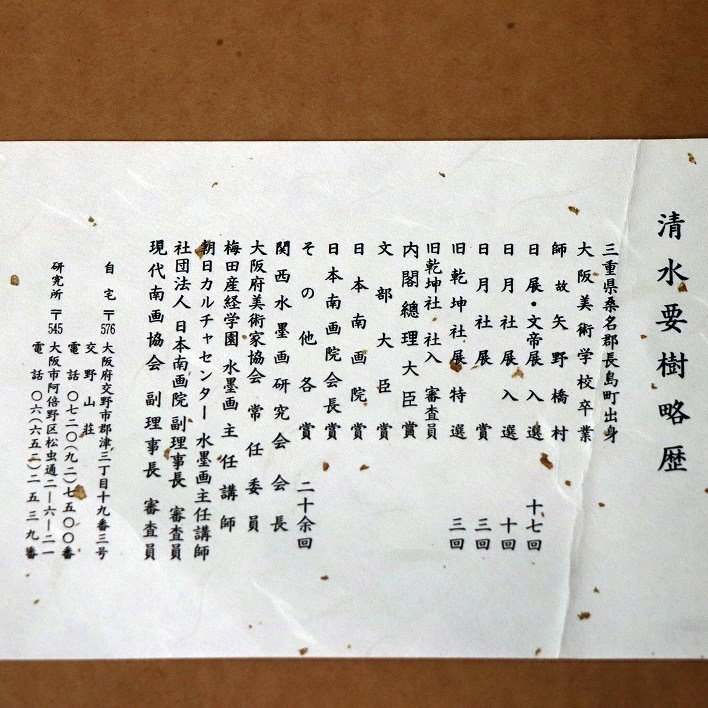 清水要樹略歴
三重県桑名郡長島町出身
大阪美術学校卒業
師 故矢野橋村
日展・文帝展 入選 十七回
日月社展 入選 十回
日月社展 賞 三回
旧乾坤社展 特選 三回
旧乾坤社 社入 審査員
内閣總理大臣賞
文部大臣賞
日本南画院賞
日本南画院会長賞
その他各賞 二十余回
関西水墨画研究会 会長
大阪府美術家協会 常任委員
梅田産経学園 水墨画 主任講師
朝日カルチャセンター 水墨画主任講師
社団法人 日本南画院 副理事長 審査員
現代南画協会 副理事長 審査員
自宅 〒576 大阪府交野市郡津三丁目十九番三号
交野山荘
電話 〇七二〇(九二)七五〇〇番
研究所 〒545 大阪市阿倍野区松虫通二ー六ー二一
電話 〇六(六五二)二五三九番